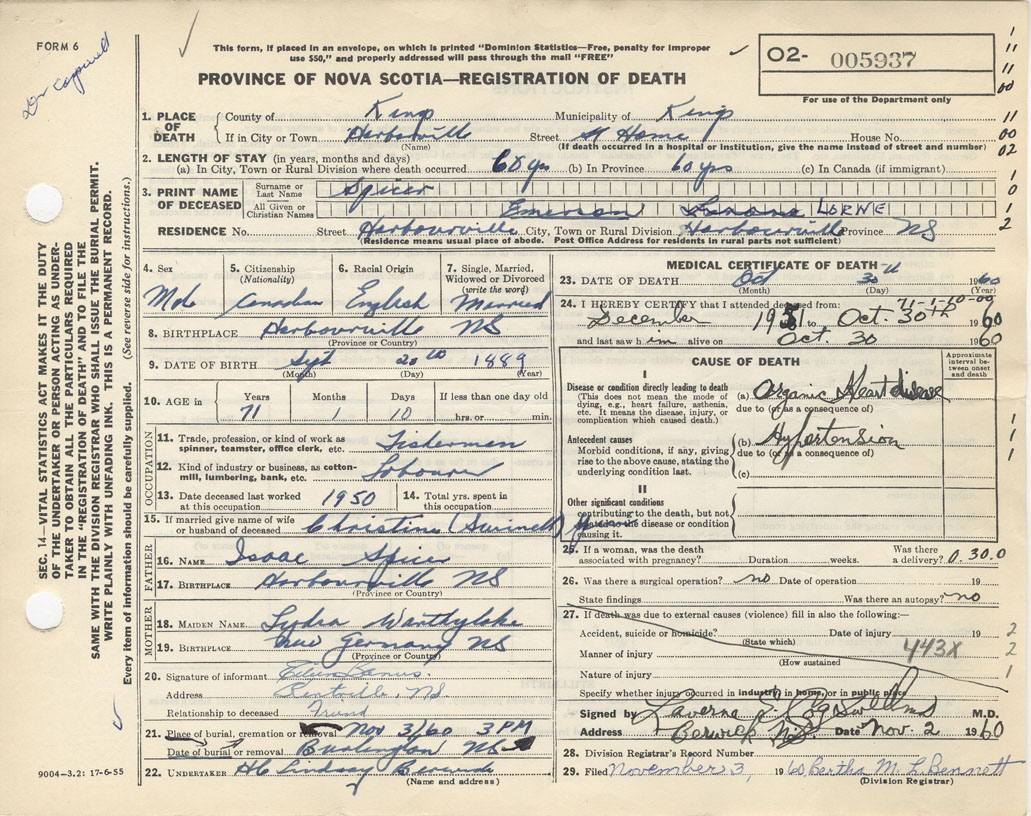 FORM 6
This form, if placed in an envelope, on which is printed "Dominion Statistics—Free, penalty for improper
use $50," and properly addressed will pass through the mail "FREE"
PROVINCE OF NOVA SCOTIA—REGISTRATION OF DEATH
O2- 005937
For use of the Department only
1. PLACE OF DEATH
County of Kings Municipality of Kings
If in City or Town Harbourville Street At Home House No.
(Name) (If death occurred in a hospital or institution, give the name instead of street and number)
2. LENGTH OF STAY (in years, months and days)
(a) In City, Town or Rural Division where death occurred 60 yrs (b) In Province 60 yrs (c) In Canada (if immigrant)
3. PRINT NAME OF DECEASED
Surname or Last Name Spicer
All Given or Christian Names Emerson LORNE
RESIDENCE No. Street Harbourville City, Town or Rural Division Harbourville Province NS
(Residence means usual place of abode. Post Office Address for residents in rural parts not sufficient)
4. Sex
Male
5. Citizenship (Nationality)
Canadian
6. Racial Origin
English
7. Single, Married, Widowed or Divorced (write the word)
Married
8. BIRTHPLACE Harbourville NS
(Province or Country)
9. DATE OF BIRTH Sept 20th 1889
(Month) (Day) (Year)
10. AGE in Years Months Days If less than one day old
71 1 10 hrs. or min.
OCCUPATION
11. Trade, profession, or kind of work as spinner, teamster, office clerk, etc. Fisherman
12. Kind of industry or business, as cotton-mill, lumbering, bank, etc. Labourer
13. Date deceased last worked at this occupation 1950
14. Total yrs. spent in this occupation
15. If married give name of wife or husband of deceased Christine (Swinell) Spicer
FATHER
16. NAME Isaac Spicer
17. BIRTHPLACE Harbourville NS
(Province or Country)
MOTHER
18. MAIDEN NAME Lydia
19. BIRTHPLACE New Germany NS
(Province or Country)
20. Signature of informant
Address Kentville, N.S.
Relationship to deceased Friend
21. Place of burial, cremation or removal Nov 3/60 3 PM
Date of burial or removal Burlington NS
22. UNDERTAKER H C Lindsay Berwick
(Name and address)
9004—3.2: 17-6-55
SEC. 14—VITAL STATISTICS ACT MAKES IT THE DUTY
OF THE UNDERTAKER OR PERSON ACTING AS UNDER-
TAKER TO OBTAIN ALL THE PARTICULARS REQUIRED
IN THE "REGISTRATION OF DEATH" AND TO FILE THE
SAME WITH THE DIVISION REGISTRAR WHO SHALL ISSUE THE BURIAL PERMIT.
WRITE PLAINLY WITH UNFADING INK. THIS IS A PERMANENT RECORD.
Every item of information should be carefully supplied. (See reverse side for instructions.)
MEDICAL CERTIFICATE OF DEATH
23. DATE OF DEATH Oct 30 1960
(Month) (Day) (Year)
71-1-10-00
24. I HEREBY CERTIFY that I attended deceased from:
December 1951 to Oct. 30th 1960
and last saw him alive on Oct. 30 1960
CAUSE OF DEATH
Approximate interval between onset and death
I
Disease or condition directly leading to death
(This does not mean the mode of dying, e.g., heart failure, asthenia, etc. It means the disease, injury, or complication which caused death.)
(a) Organic Heart disease
due to (or as a consequence of)
Antecedent causes
Morbid conditions, if any, giving rise to the above cause, stating the underlying condition last.
(b) Hypertension
due to (or as a consequence of)
(c)
II
Other significant conditions
contributing to the death, but not related to the disease or condition causing it.
25. If a woman, was the death associated with pregnancy? Duration weeks. Was there a delivery? 0.30.0
26. Was there a surgical operation? no Date of operation 19
State findings Was there an autopsy? no
27. If death was due to external causes (violence) fill in also the following:—
Accident, suicide or homicide? Date of injury 19
(State which)
Manner of injury 443X
(How sustained)
Nature of injury
Specify whether injury occurred in industry, in home, or in public place
Signed by M.D.
Address Berwick NS Date Nov. 2 1960
28. Division Registrar's Record Number
29. Filed November 3, 1960 Bertha M. L. Bennett
(Division Registrar)